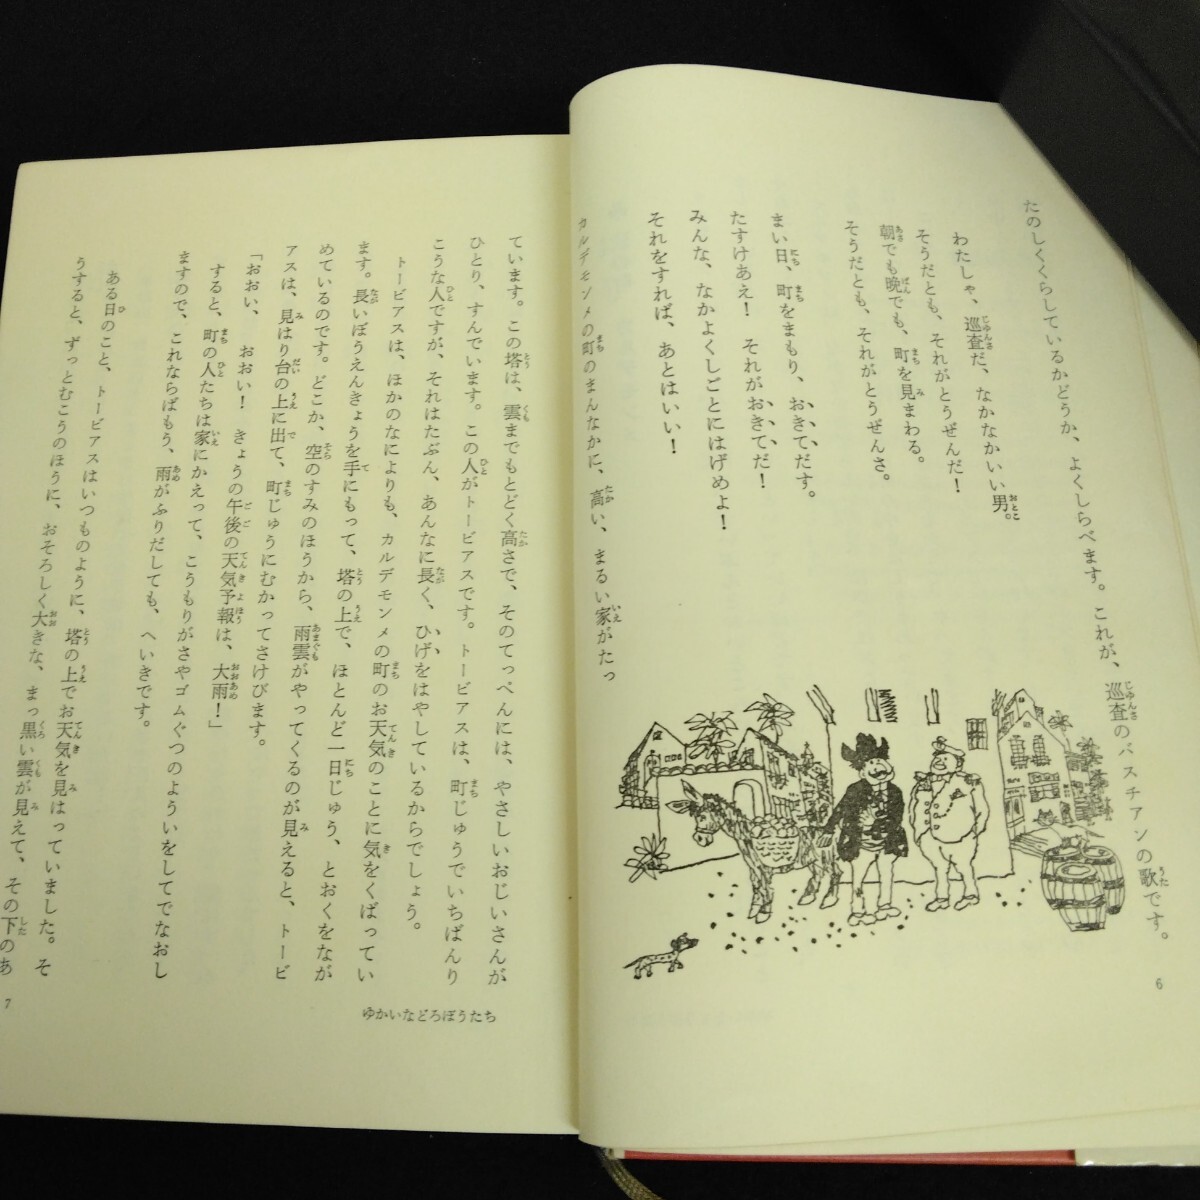 たのしくくらしているかどうか、よくしらべます。これが、巡査のバスチアンの歌です。
わたしゃ、巡査だ、なかなかいい男。
そうだとも、それがとうぜんだ！
朝でも晩でも、町を見まわる。
そうだとも、それがとうぜんさ。
まい日、町をまもり、おきてだす。
たすけあえ！　それがおきてだ！
みんな、なかよくしごとにはげめよ！
それをすれば、あとはいい！
カルデモンメの町のまんなかに、高い、まるい家がたっ
6
ています。この塔は、雲までもとどく高さで、そのてっぺんには、やさしいおじいさんが
ひとり、すんでいます。この人がトービアスです。トービアスは、町じゅうでいちばんり
こうな人ですが、それはたぶん、あんなに長く、ひげをはやしているからでしょう。
トービアスは、ほかのなによりも、カルデモンメの町のお天気のことに気をくばってい
ます。長いぼうえんきょうを手にもって、塔の上で、ほとんど一日じゅう、とおくをなが
めているのです。どこか、空のすみのほうから、雨雲がやってくるのが見えると、トービ
アスは、見はり台の上に出て、町じゅうにむかってさけびます。
「おおい、おおい！　きょうの午後の天気予報は、大雨！」
すると、町の人たちは家にかえって、こうもりがさやゴムぐつのよういをしてでなおし
ますので、これならばもう、雨がふりだしても、へいきです。
ある日のこと、トービアスはいつものように、塔の上でお天気を見はっていました。そ
うすると、ずっとむこうのほうに、おそろしく大きな、まっ黒い雲が見えて、その下のあ
ゆかいなどろぼうたち
7